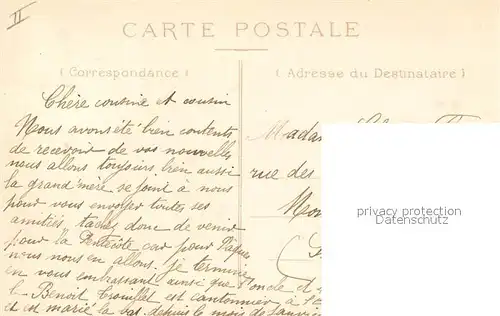 II
CARTE POSTALE
(Correspondance)
(Adresse du Destinataire)
Chère cousine et cousin
Nous avons été bien contents
de recevoir de vos nouvelles
nous allons toujours bien aussi
la grand'mère se joint à nous
pour vous envoyer toutes ses
amitiés, tachez donc de venir
pour la Pentecôte car pour Pâques
nous nous en allons. je termine
en vous embrassant ainsi que l'oncle et
le Benoit est cantonnier à
et est marié la bas depuis le mois de Janvier
Madame
rue des
privacy protection
VARIOUS PERSONAL DATA